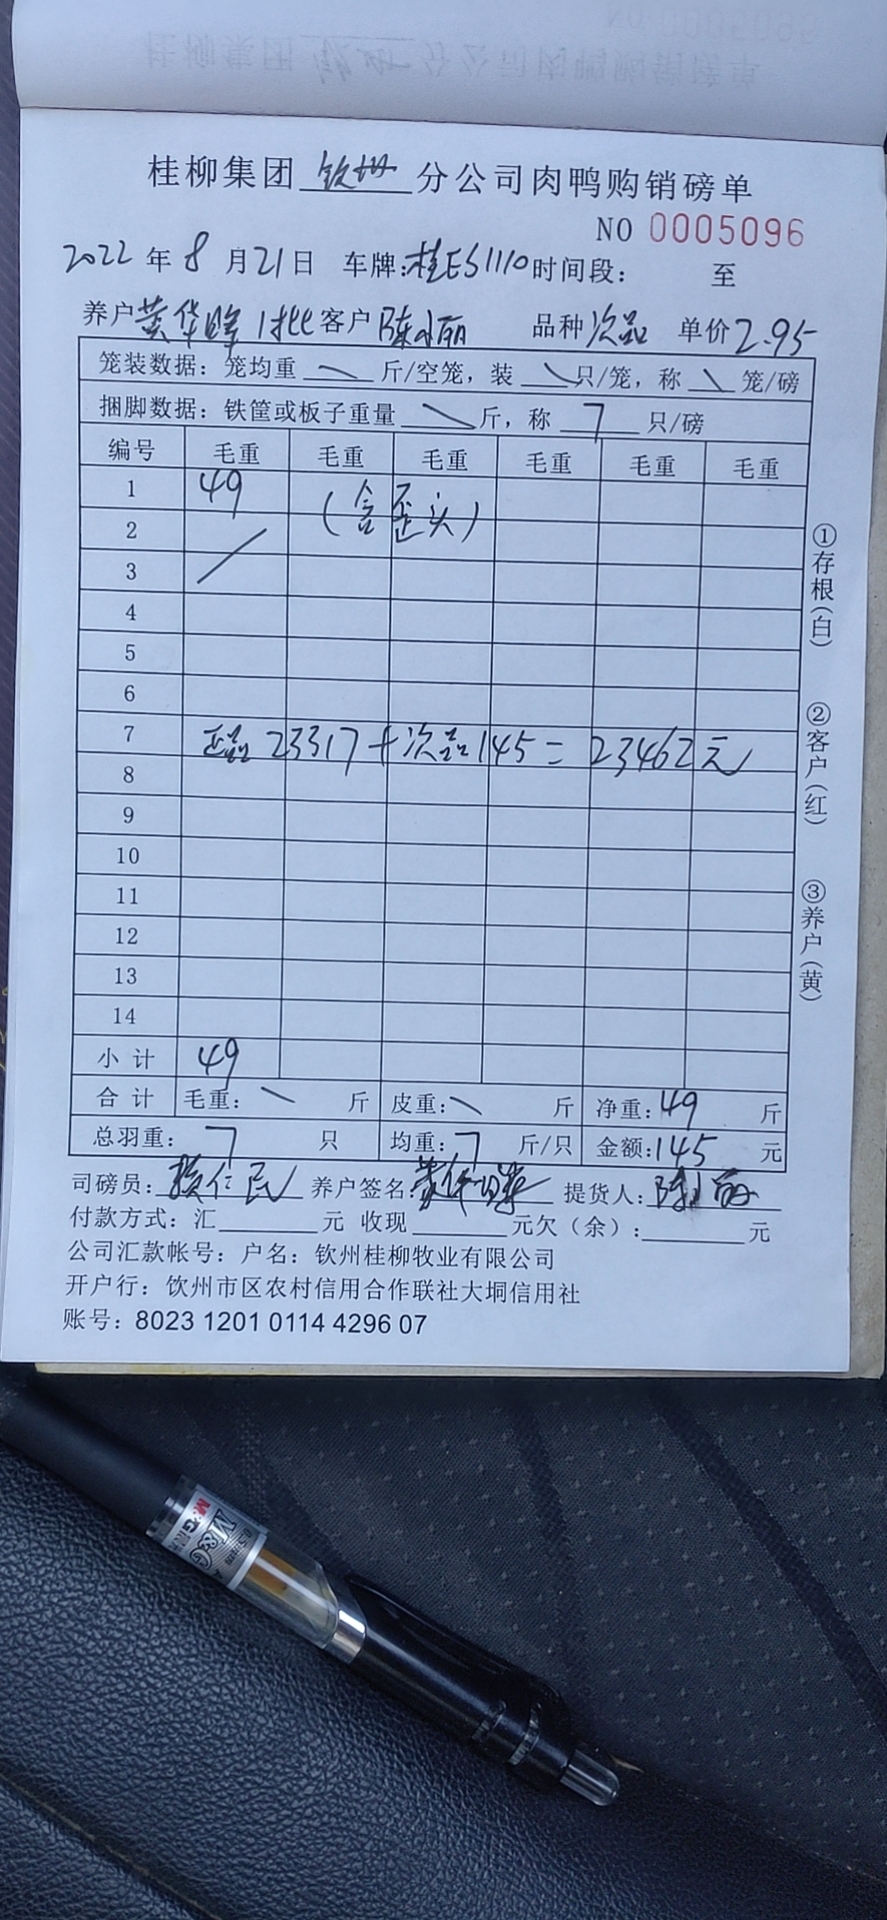 桂柳集团钦州分公司肉鸭购销磅单
NO 0005096
2022年8月21日 车牌:桂ES1110 时间段: 至
养户黄华峰1批 客户陈小丽 品种次品 单价2.95
笼装数据:笼均重 \ 斤/空笼,装 \ 只/笼,称 \ 笼/磅
捆脚数据:铁筐或板子重量 \ 斤,称 7 只/磅
编号 毛重 毛重 毛重 毛重 毛重 毛重
1 49 (含歪头)
2
3
4
5
6
7 正品23317+次品145=23462元
8
9
10
11
12
13
14
小计 49
合计 毛重:\ 斤 皮重:\ 斤 净重:49 斤
总羽重:7 只 均重:7 斤/只 金额:145 元
司磅员: 仁民 养户签名:黄华峰 提货人:陈小丽
付款方式:汇 元 收现 元欠(余): 元
公司汇款帐号:户名:钦州桂柳牧业有限公司
开户行:饮州市区农村信用合作联社大垌信用社
账号:8023 1201 0114 4296 07
①存根(白)
②客户(红)
③养户(黄)
M&G